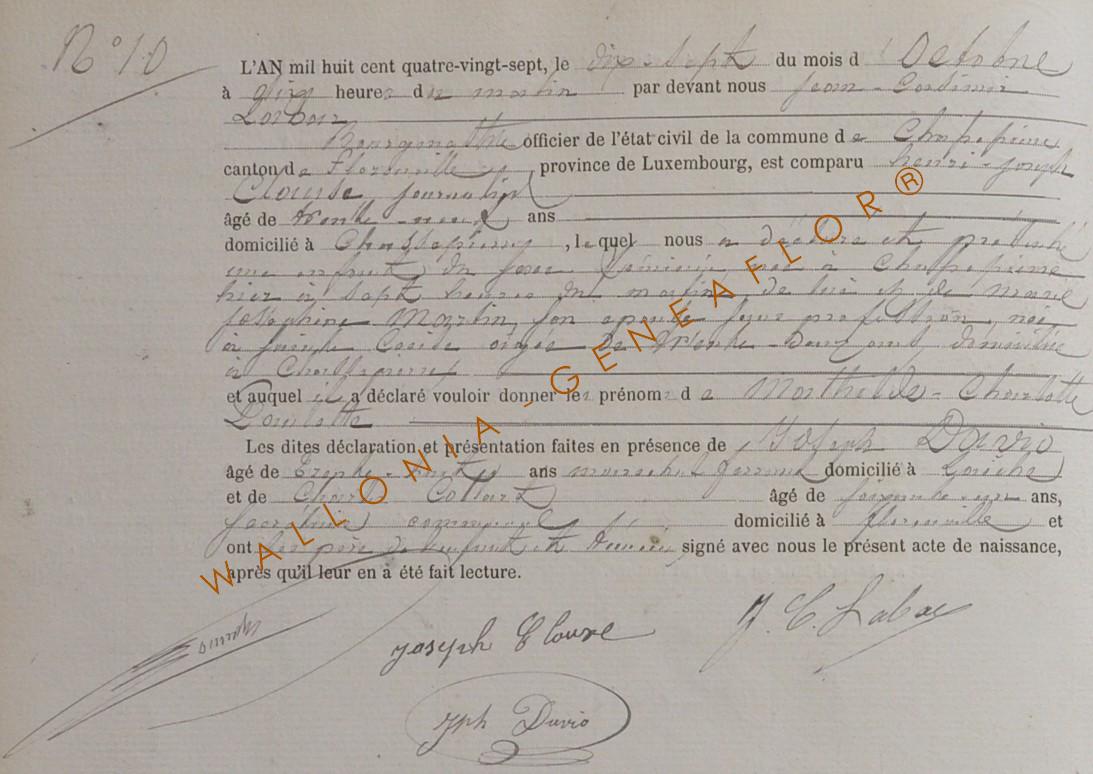 N° 10
L'AN mil huit cent quatre-vingt-sept, le dix-sept du mois d'Octobre
à dix heures du matin par devant nous Jean-Casimir
Bourgmestre officier de l'état civil de la commune de Chassepierre
canton de Florenville, province de Luxembourg, est comparu henri-joseph
Clouse journalier
âgé de trente-neuf ans
domicilié à Chassepierre, lequel nous a déclaré et présenté
une enfant du sexe féminin née à Chassepierre
hier à sept heures du matin, de lui et de Marie
Joséphine Martin, son épouse sans profession, née
à Sainte Cécile âgée de trente-deux ans, domiciliée
à Chassepierre
et auquel il a déclaré vouloir donner les prénoms de Mathilde-Charlotte
Les dites déclaration et présentation faites en présence de Joseph Davio
âgé de ans maréchal ferrant domicilié à
et de Charles Collart âgé de ans,
secrétaire communal domicilié à Florenville et
ont les père de l'enfant et témoins signé avec nous le présent acte de naissance,
après qu'il leur en a été fait lecture.
Joseph Clouse
J. C. Labar
Jph Davio
WALLONIA-GENEAFLOR®